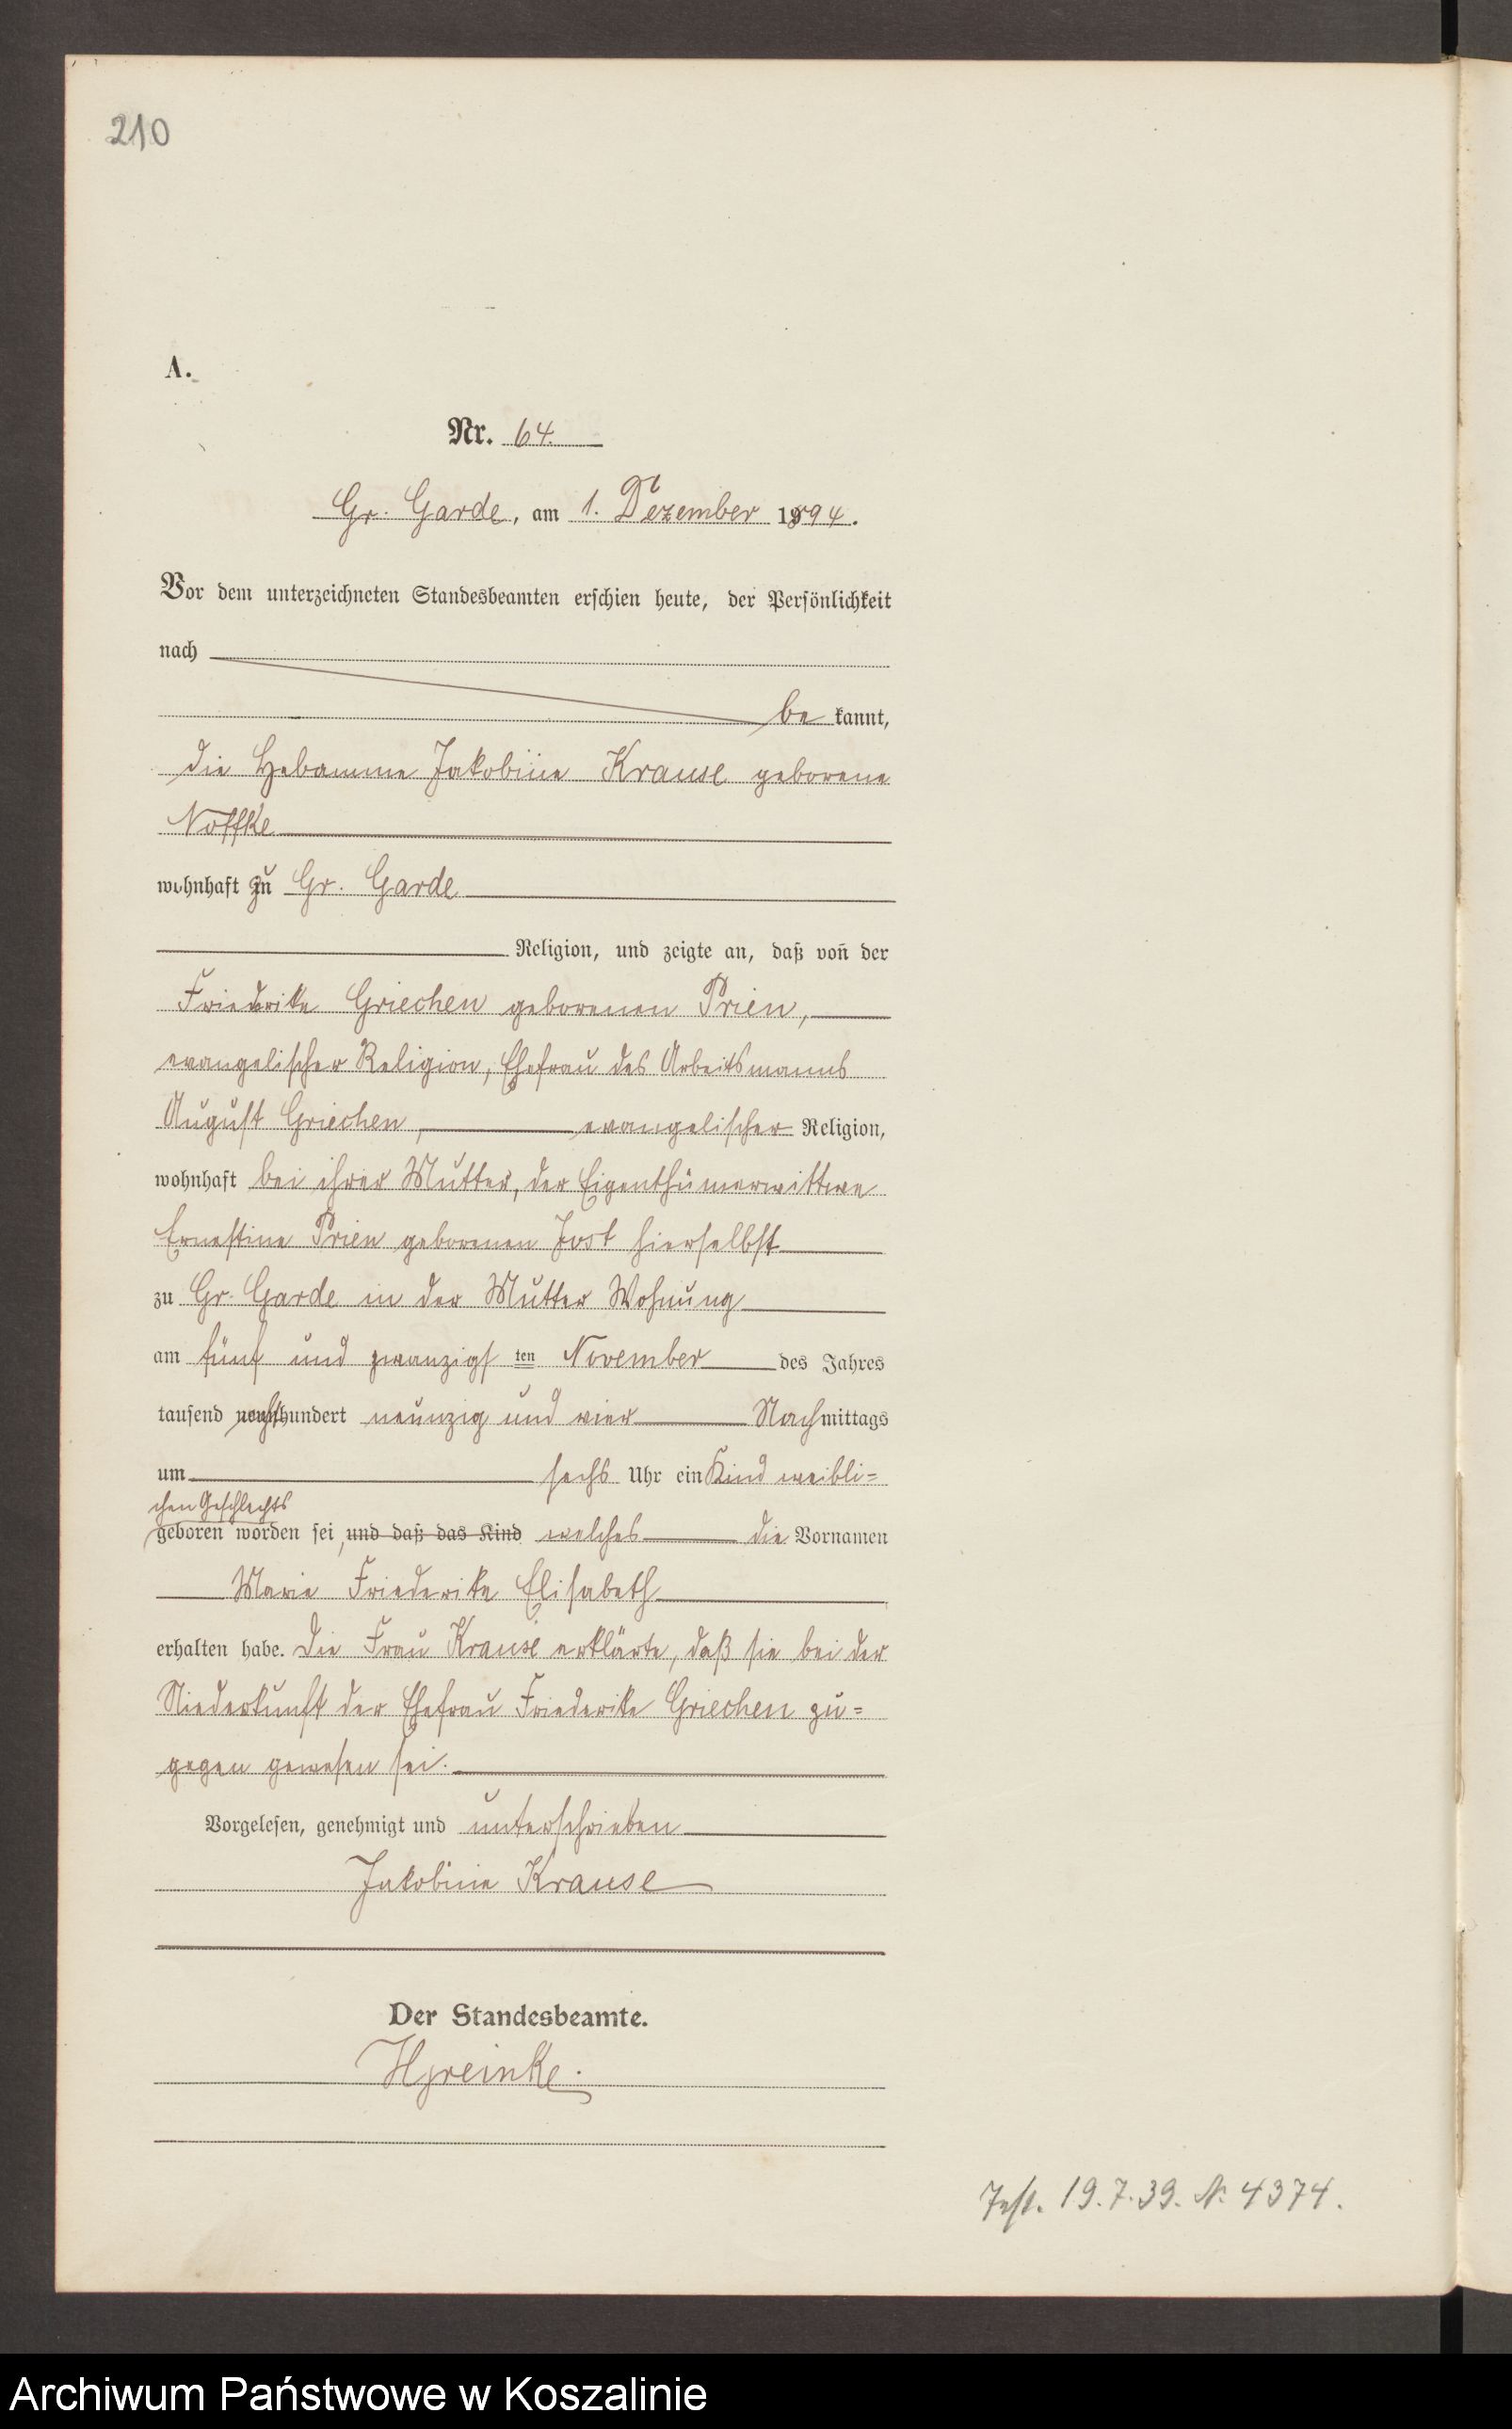 210
A.
Nr. 64.
Gr. Garde, am 1. Dezember 1894.
Vor dem unterzeichneten Standesbeamten erschien heute, der Persönlichkeit
nach
be kannt,
die Hebamme Jakobine Krause geborene
Noffke
wohnhaft zu Gr. Garde
Religion, und zeigte an, daß von der
Friederike Griechen geborenen Prien,
evangelischer Religion, Ehefrau des Arbeitsmanns
August Griechen, evangelischer Religion,
wohnhaft bei ihrer Mutter, der Eigenthümerwittwe
Ernestine Prien geborenen Jost hierselbst
zu Gr. Garde in der Mutter Wohnung
am fünf und zwanzigs ten November des Jahres
tausend achthundert neunzig und vier Nachmittags
um sechs Uhr ein Kind weibli=
chen Geschlechts
geboren worden sei, und daß das Kind welches die Vornamen
Marie Friederike Elisabeth
erhalten habe. Die Frau Krause erklärte, daß sie bei der
Niederkunft der Ehefrau Friederike Griechen zu=
gegen gewesen sei.
Vorgelesen, genehmigt und unterschrieben
Jakobine Krause
Der Standesbeamte.
19.7.39. N. 4374.
Archiwum Państwowe w Koszalinie